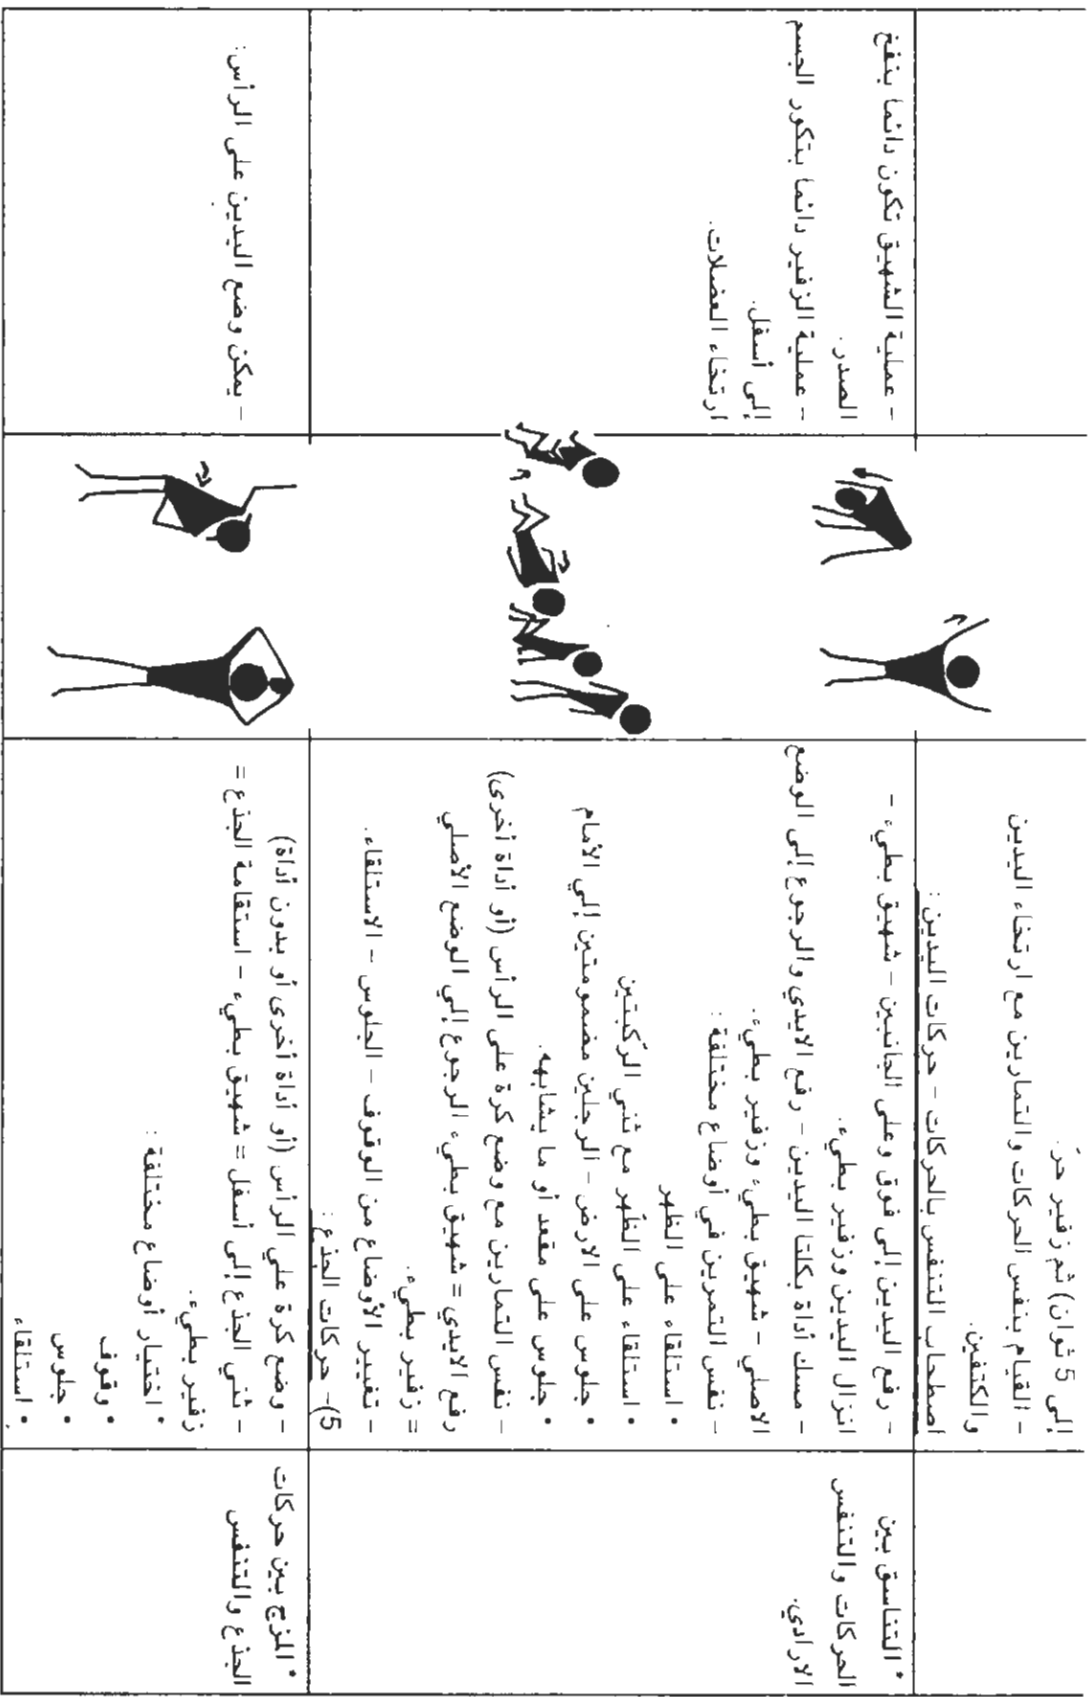 إلى 5 ثوان) ثم زفير حر.
- القيام بنفس الحركات والتمارين مع ارتخاء اليدين
والكتفين.
اصطحاب التنفس بالحركات - حركات اليدين :
* التناسق بين
الحركات والتنفس
الارادي.
- رفع اليدين إلى فوق وعلى الجانبين - شهيق بطيء -
انزال اليدين وزفير بطيء.
- مسك أداة بكلتا اليدين - رفع الايدي والرجوع إلى الوضع
الاصلي - شهيق بطيء وزفير بطيء.
- نفس التمرين في أوضاع مختلفة :
• استلقاء على الظهر
• استلقاء على الظهر مع ثني الركبتين
• جلوس على الارض - الرجلين مضمومتين إلي الأمام
• جلوس على مقعد أو ما يشابهه.
- نفس التمارين مع وضع كرة على الرأس (أو أداة أخرى)
رفع الايدي = شهيق بطيء الرجوع إلي الوضع الأصلي
= زفير بطيء.
- تغيير الأوضاع من الوقوف - الجلوس - الاستلقاء.
5)- حركات الجذع :
- عملية الشهيق تكون دائما بنفخ
الصدر.
- عملية الزفير دائما بتكور الجسم
إلى أسفل.
ارتخاء العضلات.
* المزج بين حركات
الجذع والتنفس
- وضع كرة علي الرأس (أو أداة أخرى أو بدون أداة)
- ثني الجذع إلى أسفل = شهيق بطيء - استقامة الجذع =
زفير بطيء.
* اختيار أوضاع مختلفة :
• وقوف
• جلوس
• استلقاء
- يمكن وضع اليدين على الرأس.